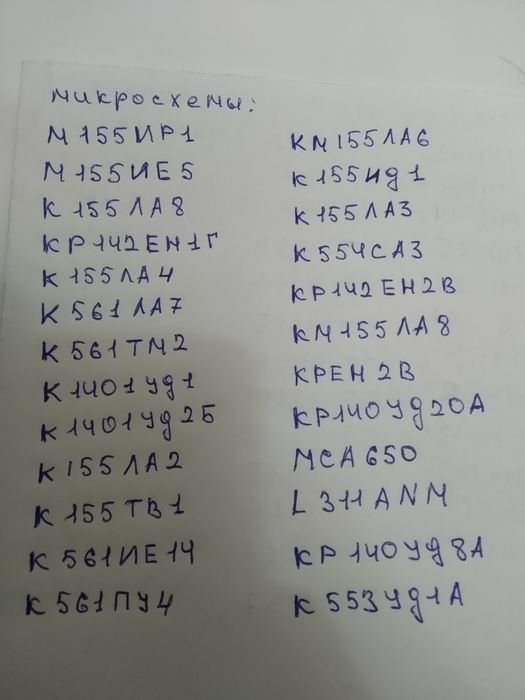 микросхемы:
М155ИР1
М155ИЕ5
К155ЛА8
КР142ЕН1Г
К155ЛА4
К561ЛА7
К561ТМ2
К1401Уд1
К1401Уд2Б
К155ЛА2
К155ТВ1
К561ИЕ14
К561ПУ4
КМ155ЛА6
К155Ид1
К155ЛА3
К554СА3
КР142ЕН2В
КМ155ЛА8
КРЕН2В
КР140Уд20А
МСА650
L311ANM
КР140Уд8А
К553Уд1А